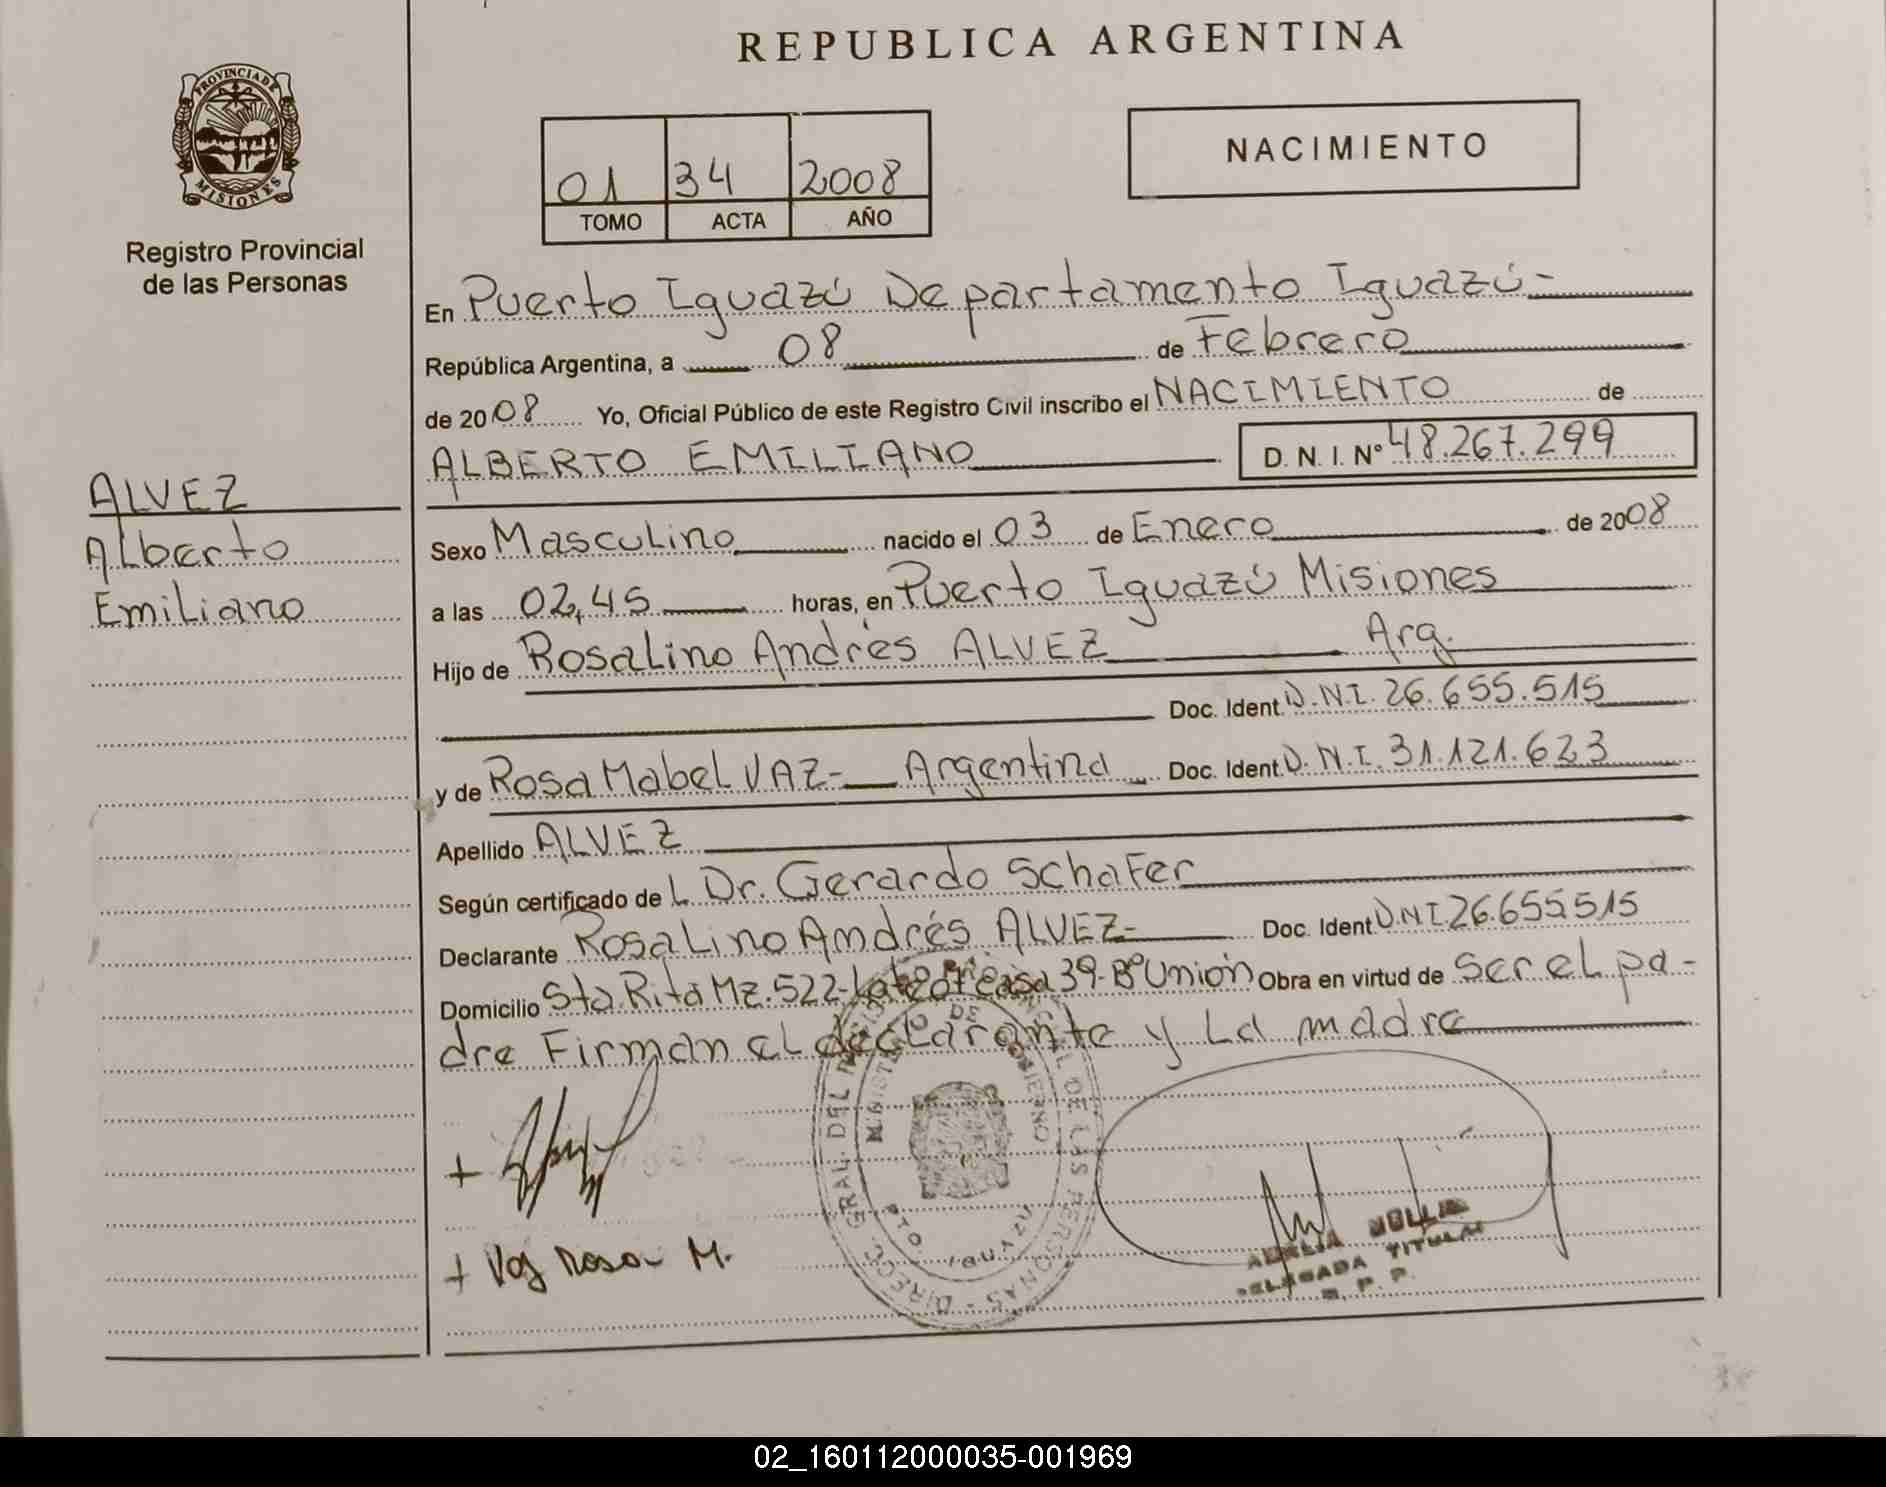 REPUBLICA ARGENTINA
PROVINCIA DE
MISIONES
Registro Provincial
de las Personas
01 34 2008
TOMO ACTA AÑO
NACIMIENTO
En Puerto Iguazú Departamento Iguazú-
República Argentina, a 08 de Febrero
de 2008 Yo, Oficial Público de este Registro Civil inscribo el NACIMIENTO de
ALBERTO EMILIANO D. N. I. Nº 48.267.299
ALVEZ
Alberto
Emiliano
Sexo Masculino nacido el 03 de Enero de 2008
a las 02,45 horas, en Puerto Iguazú Misiones
Hijo de Rosalino Andrés ALVEZ Arg.
Doc. Ident D.N.I. 26.655.515
y de Rosa Mabel VAZ- Argentina Doc. Ident D.N.I. 31.121.623
Apellido ALVEZ
Según certificado de L Dr. Gerardo Schafer
Declarante Rosalino Andrés ALVEZ- Doc. Ident DNI 26.655515
Domicilio Sta. Rita Mz. 522- casa 39-Bº Unión Obra en virtud de Ser el pa-
dre Firman el declarante y La madre
+
+ Vaz Rosa M.
DIRECC. GRAL. DEL DE LAS PERSONAS
MINISTERIO DE GOBIERNO
DTO. IGUAZU
TITULAR
R. P. P.
02_160112000035-001969